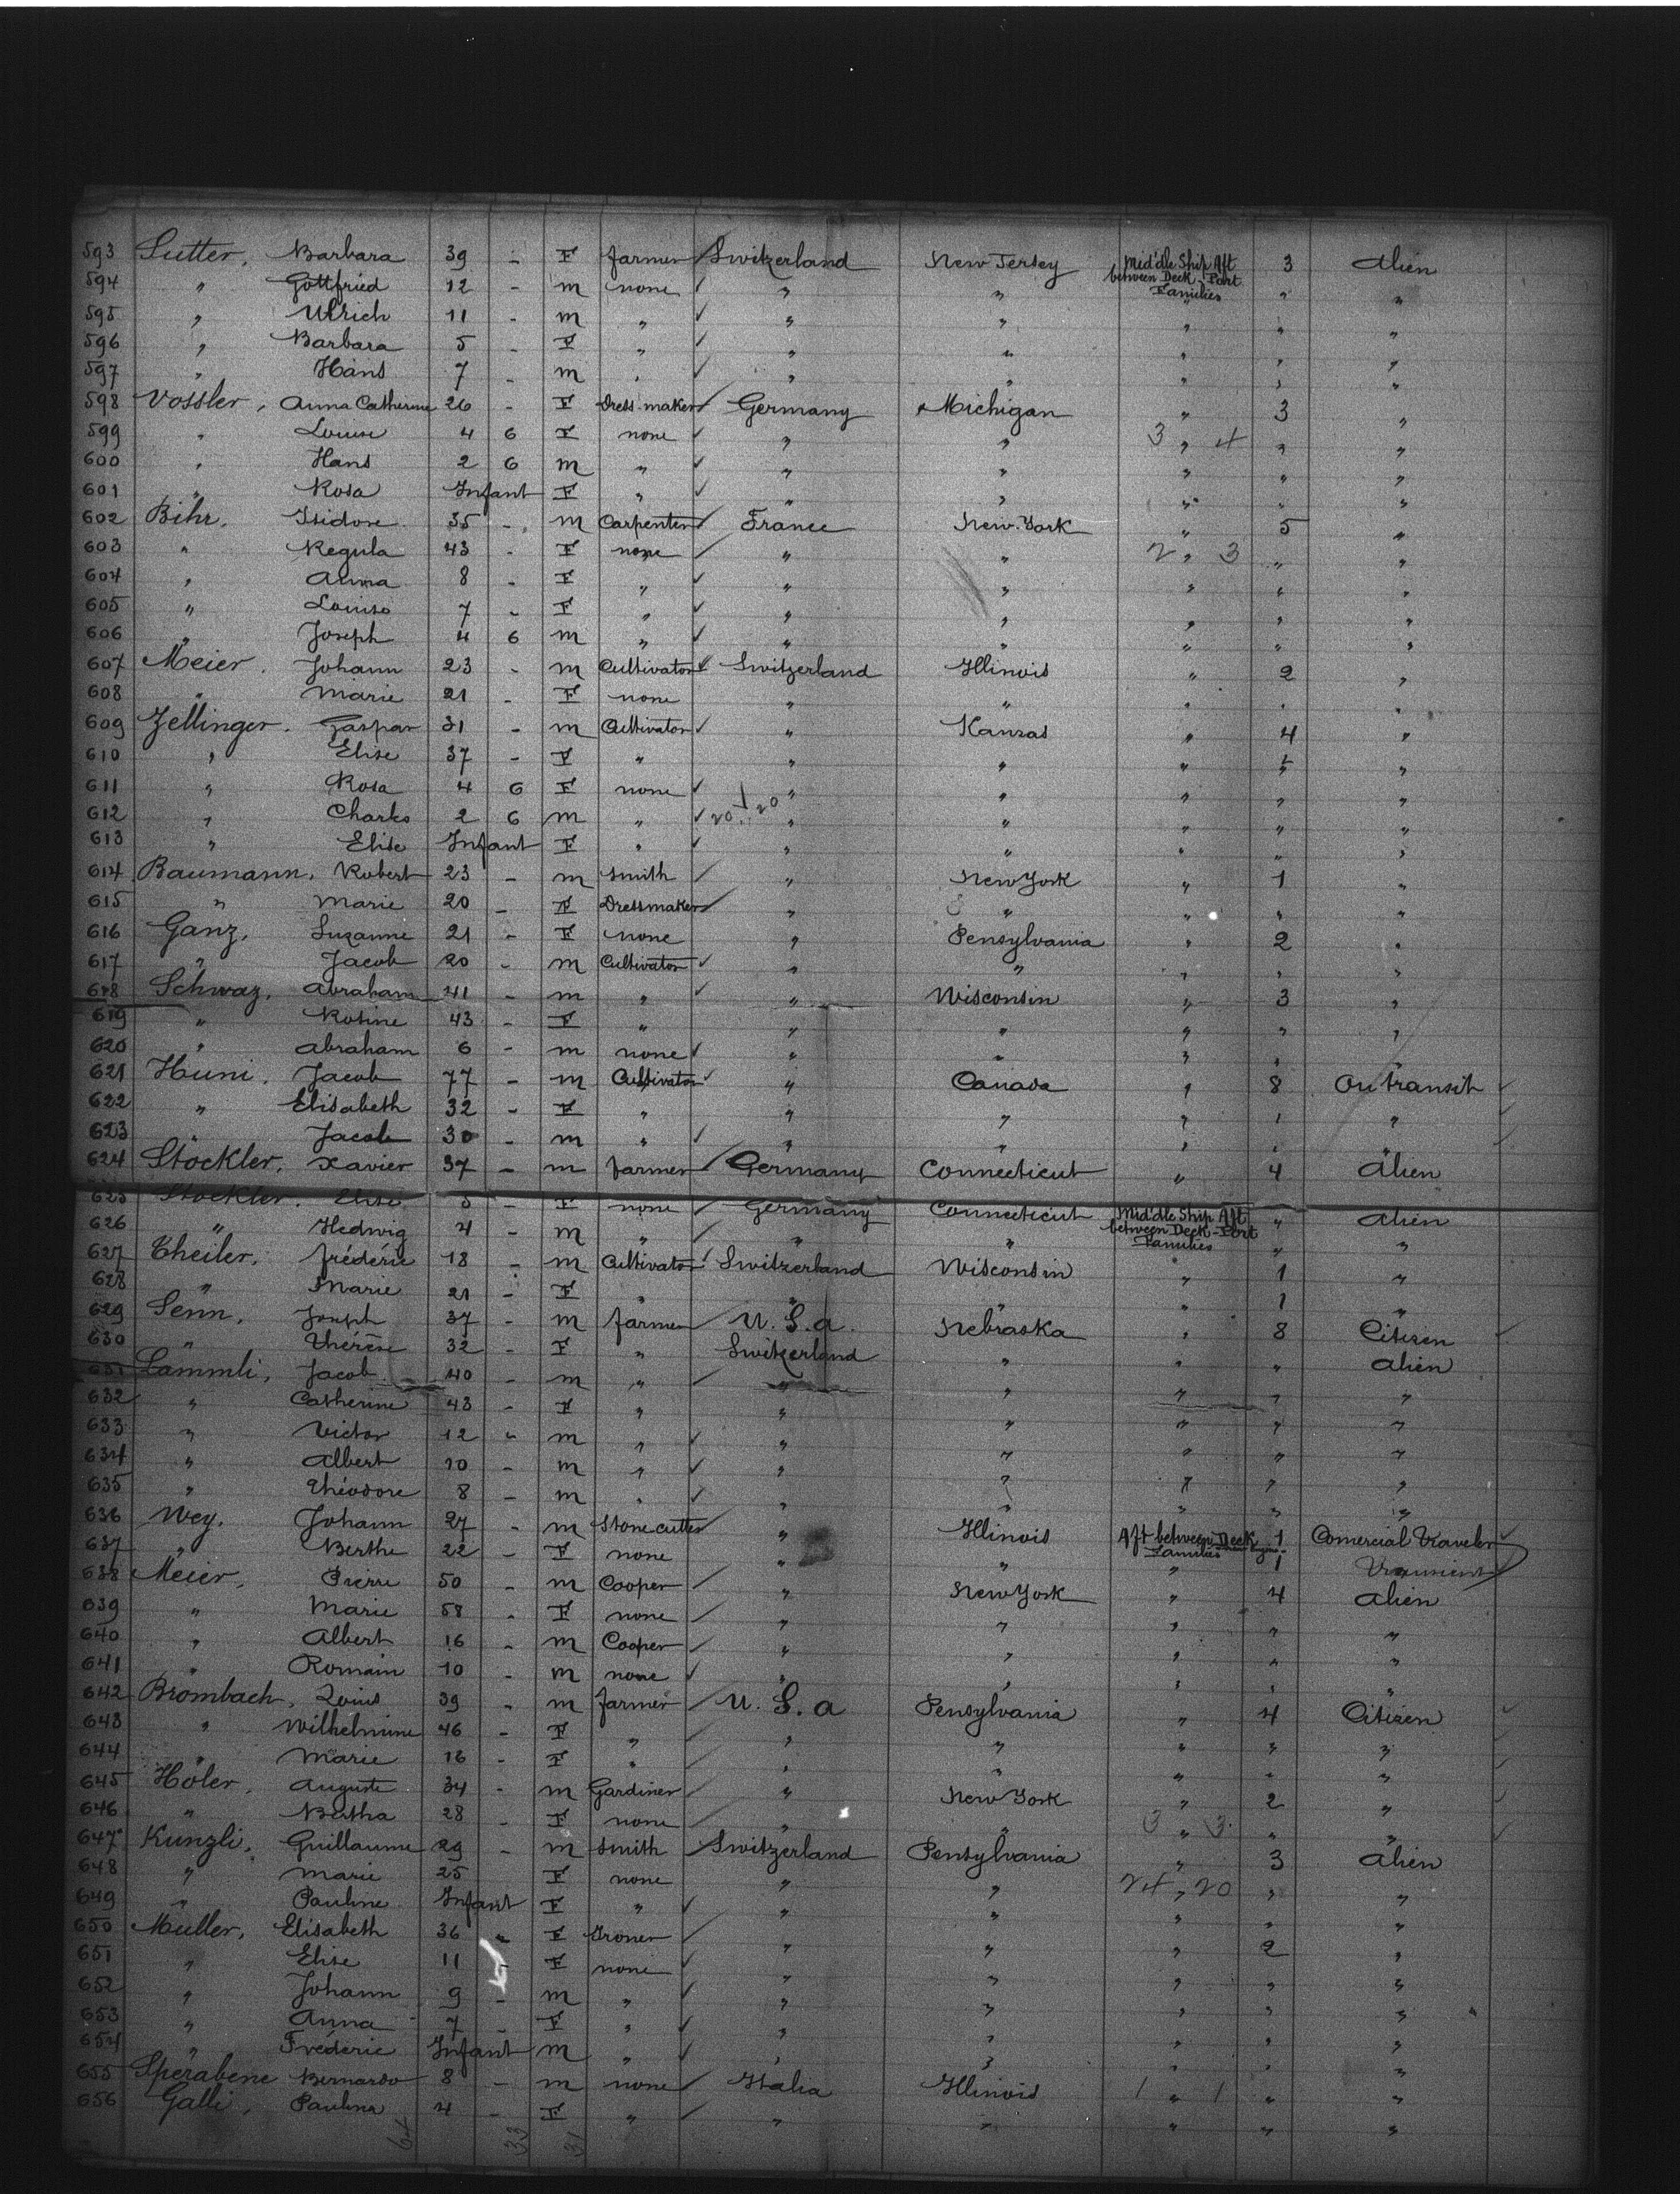 593 Sutter, Barbara 39 - F farmer Switzerland New Jersey Mid'dle Ship Aft between Deck - Port Families 3 Alien
594 " Gottfried 12 - m none " " " " "
595 " Ulrich 11 - m " " " " " "
596 " Barbara 5 - F " " " " " "
597 " Hans 7 - m " " " " " "
598 Vossler, Anna Catherine 26 - F Dress-maker Germany Michigan " 3 "
599 " Louise 4 6 F none " " 3 " 4 " "
600 " Hans 2 6 m " " " " " "
601 " Rosa Infant F " " " " " "
602 Bihr, Isidore 35 - m Carpenter France New-York " 5 "
603 " Regula 43 - F none " " 2 " 3 " "
604 " Anna 8 - F " " " " " "
605 " Louise 7 - F " " " " " "
606 " Joseph 4 6 m " " " " " "
607 Meier, Johann 23 - m Cultivator Switzerland Illinois " 2 "
608 " Marie 21 - F none " " " " "
609 Zellinger, Gaspar 31 - m Cultivator " Kansas " 4 "
610 " Elise 37 - F " " " " " "
611 " Rosa 4 6 F none " " " " "
612 " Charles 2 6 m " 20 " 20 " " " "
613 " Elise Infant F " " " " " "
614 Baumann, Robert 23 - m Smith " New York " 1 "
615 " Marie 20 - F Dressmaker " " " " "
616 Ganz, Suzanne 21 - F none " Pensylvania " 2 "
617 " Jacob 20 - m Cultivator " " " " "
618 Schwaz, Abraham 41 - m " " Wisconsin " 3 "
619 " Rosine 43 - F " " " " " "
620 " Abraham 6 - m none " " " " "
621 Huni, Jacob 77 - m Cultivator " Canada " 8 On transit
622 " Elisabeth 32 - F " " " " " "
623 " Jacob 30 - m " " " " " "
624 Stöckler, Xavier 37 - m farmer Germany Connecticut " 4 Alien
625 Stöckler, Elise 5 - F none Germany Connecticut Mid'dle Ship Aft between Deck - Port Families " Alien
626 " Hedwig 4 - m " " " " "
627 Theiler, Frédéric 18 - m Cultivator Switzerland Wisconsin " 1 "
628 " Marie 21 - F " " " " 1 "
629 Senn, Joseph 37 - m farmer U.S.a. Nebraska " 8 Citizen
630 " Thérèse 32 - F " Switzerland " " " Alien
631 Lammli, Jacob 40 - m " " " " " "
632 " Catherine 43 - F " " " " " "
633 " Victor 12 - m " " " " " "
634 " Albert 10 - m " " " " " "
635 " Théodore 8 - m " " " " " "
636 Wey, Johann 27 - m Stone cutter " Illinois Aft between Deck Families 1 Comercial Traveler
637 " Berthe 22 - F none " " " 1
638 Meier, Pierre 50 - m Cooper " New York " 4 Alien
639 " Marie 58 - F none " " " " "
640 " Albert 16 - m Cooper " " " " "
641 " Romain 10 - m none " " " " "
642 Brombach, Louis 39 - m farmer U.S.a Pensylvania " 4 Citizen
643 " Wilhelmine 46 - F " " " " " "
644 " Marie 16 - F " " " " " "
645 Höler, Auguste 34 - m Gardiner " New York " 2 "
646 " Bertha 28 - F none " " 3 " 3 " "
647 Kunzli, Guillaume 29 - m Smith Switzerland Pensylvania " 3 Alien
648 " Marie 25 F none " " 24 " 20 " "
649 " Pauline Infant F " " " " " "
650 Muller, Elisabeth 36 - F " " " 2 "
651 " Elise 11 - F none " " " " "
652 " Johann 9 - m " " " " " "
653 " Anna 7 - F " " " " " "
654 " Frédéric Infant m " " " " " "
655 Sperabene Bernardo 8 - m none Italia Illinois 1 " 1 " "
656 Galli, Paulina 4 - F " " " " " "
33 31